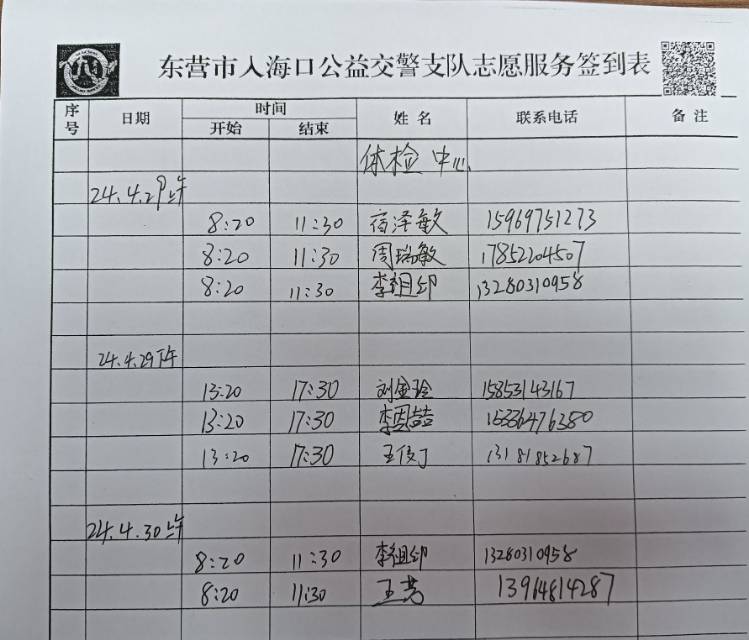 东营市入海口公益交警支队志愿服务签到表
序号 日期 时间 姓名 联系电话 备注
开始 结束
体检中心
24.4.29上午
8:20 11:30 宿泽敏 15969751273
8:20 11:30 周瑞敏 17852204507
8:20 11:30 李祖印 13280310958
24.4.29下午
13:20 17:30 刘金玲 15853143167
13:20 17:30 李恩喆 15336476380
13:20 17:30 王俊丁 13181852687
24.4.30上午
8:20 11:30 李祖印 13280310958
8:20 11:30 王芳 13964814287